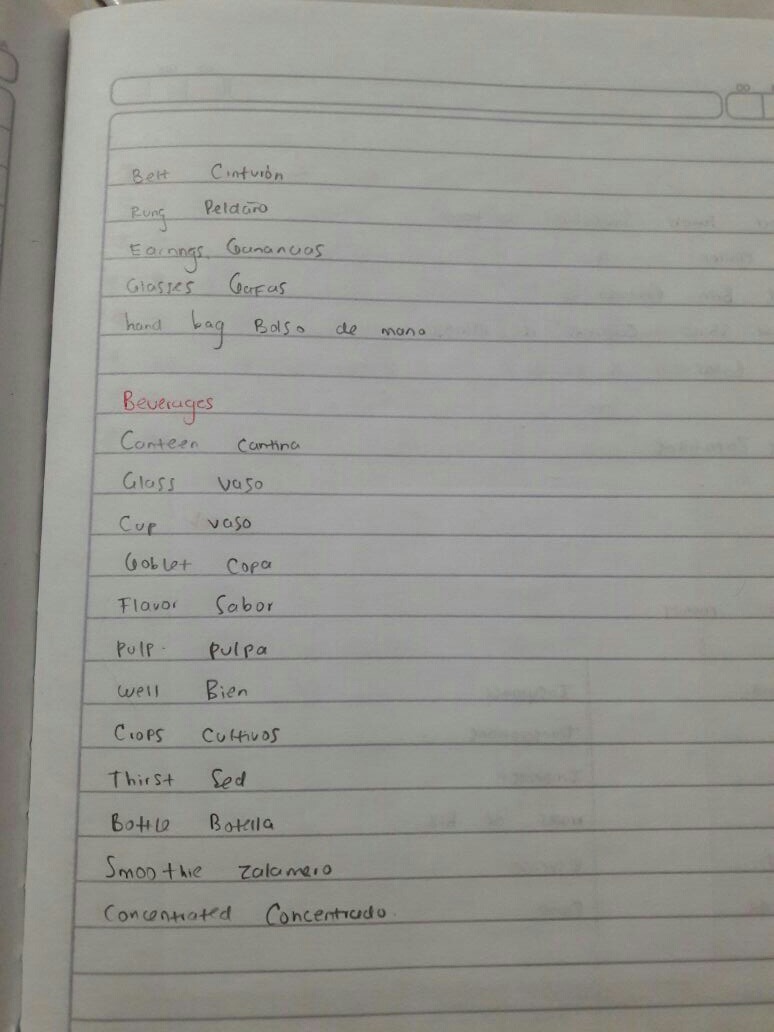 Belt Cinturón
Rung Peldaño
Earnings. Ganancias
Glasses Gafas
hand bag Bolso de mano.
Beverages
Canteen cantina
Glass vaso
Cup vaso
Goblet copa
Flavor Sabor
Pulp. pulpa
well Bien
Crops cultivos
Thirst Sed
Bottle Botella
Smoothie zalamero
Concentrated Concentrado.